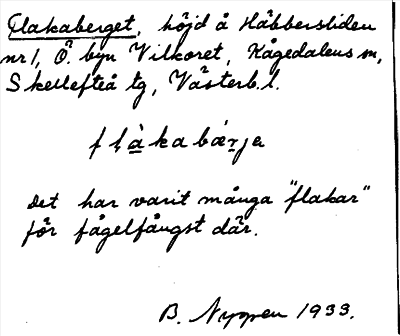 Flakaberget, höjd å Häbbersliden
nr 1, Ö. byn Vilkoret, Kågedalens sn,
Skellefteå tg, Västerb. l.
flàkabárja
Det har varit många "flakar"
för fågelfångst där.
B. Nyppen 1933.